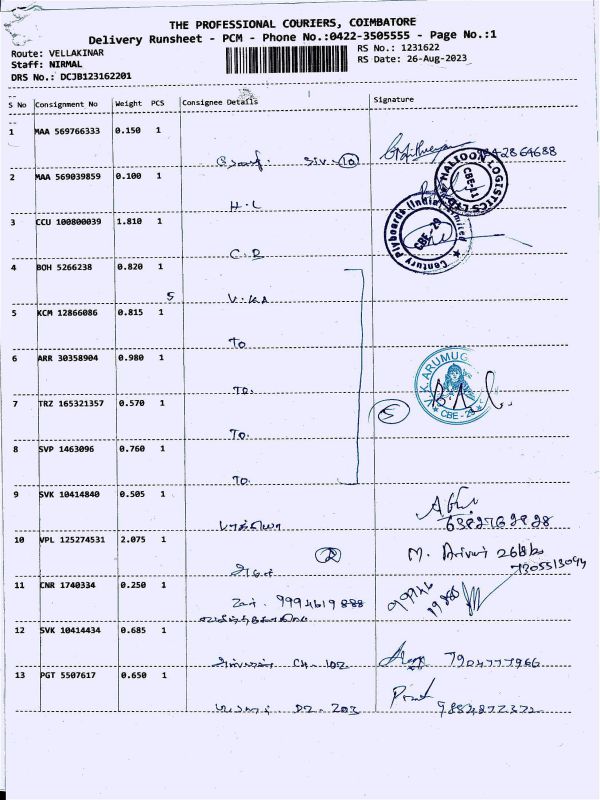 THE PROFESSIONAL COURIERS, COIMBATORE
Delivery Runsheet - PCM - Phone No.:0422-3505555 - Page No.:1
Route: VELLAKINAR RS No.: 1231622
Staff: NIRMAL RS Date: 26-Aug-2023
DRS No.: DCJB123162201
S No Consignment No Weight PCS Consignee Details Signature
1 MAA 569766333 0.150 1
SIV. 10
2 MAA 569039859 0.100 1
HALICON LOGISTICS CBE-41
H.L
3 CCU 100800039 1.810 1
Century Plyboards (India) Limited CBE - 29
C.P
4 BOH 5266238 0.820 1
5 V.KA
5 KCM 12866086 0.815 1
TO
6 ARR 30358904 0.980 1
V.K. ARUMUG CBE - 29
TO.
7 TRZ 165321357 0.570 1
5
TO.
8 SVP 1463096 0.760 1
TO.
9 SVK 10414840 0.505 1
10 VPL 125274531 2.075 1
2
M.
11 CNR 1740334 0.250 1
9994619888
12 SVK 10414434 0.685 1
CH-102 7904777966
13 PGT 5507617 0.650 1
D2-203